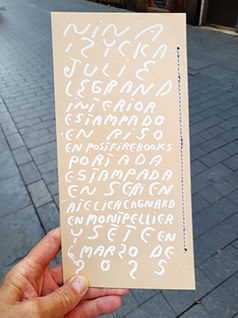 NINA
IZYCKA
JULIE
LEGRAND
INTERIOR
ESTAMPADO
EN RISO
EN POSTFIREBOOKS
PORTADA
ESTAMPADA
EN SERI EN
ATELIER CAGNARD
EN MONTPELLIER
Y SETE EN
MARZO DE
2025